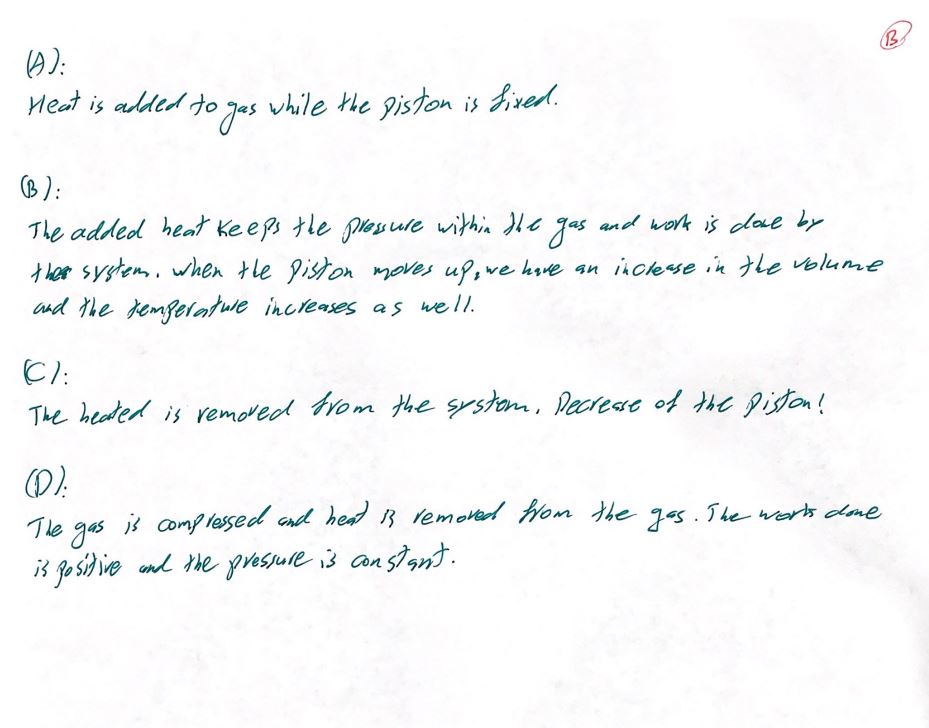 B
(A):
Heat is added to gas while the piston is fixed.
(B):
The added heat keeps the pressure within the gas and work is done by
the system. when the piston moves up, we have an increase in the volume
and the temperature increases as well.
(C):
The heated is removed from the system. Decrease of the piston!
(D):
The gas is compressed and heat is removed from the gas. The work done
is positive and the pressure is constant.